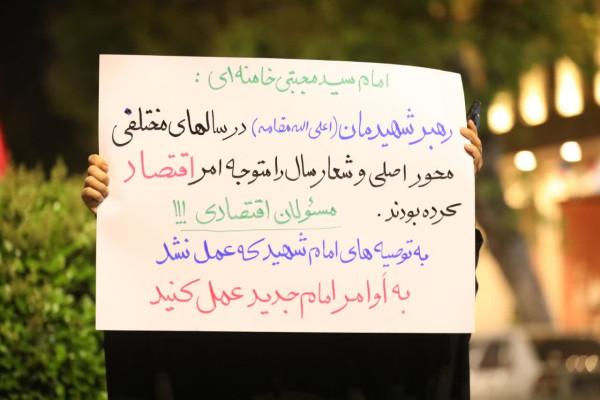 امام سید مجتبی خامنه‌ای :
رهبر شهیدمان (اعلی الله مقامه) در سالهای مختلفی
محور اصلی و شعار سال را متوجه امر اقتصاد
کرده بودند .
مسئولان اقتصادی !!!
به توصیه های امام شهید که عمل نشد
به اَوامر امام جدید عمل کنید